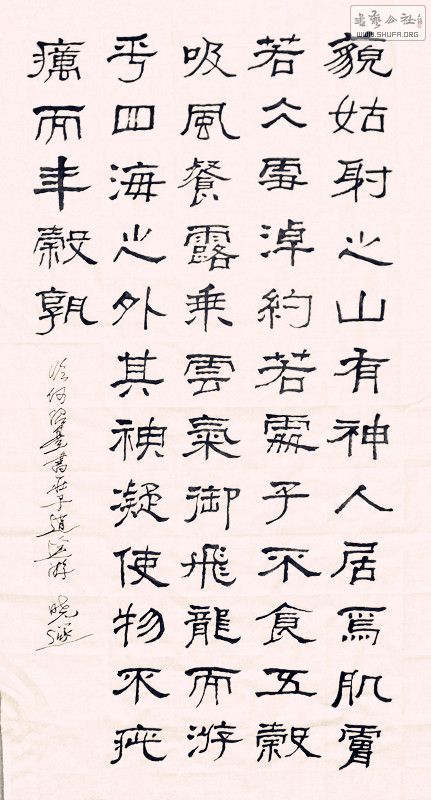 藐姑射之山有神人居焉肌膚
若仌雪淖約若處子不食五穀
吸風餐露乘雲氣御飛龍而游
乎四海之外其神凝使物不疵
癘而年穀孰
临何绍基書庄子逍遥游 晓
書藝公社
WWW.SHUFA.ORG